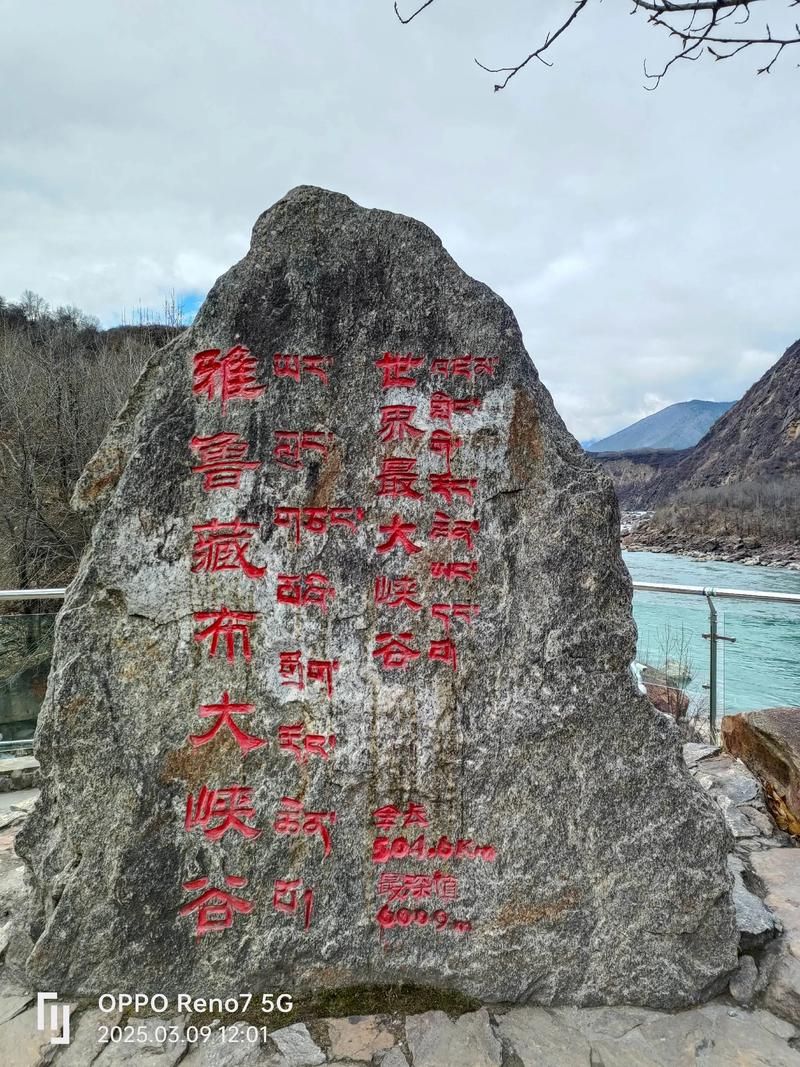 雅鲁藏布大峡谷
ཡར་ཀླུང་གཙང་པོའི་གྲོག་རོང་ཆེན་པོ།
世界最大峡谷
འཛམ་གླིང་གི་རོང་ཆེན་ཨང་དང་པོ།
全长
504.6Km
最深值
6009m
OPPO Reno7 5G
2025.03.09 12:01